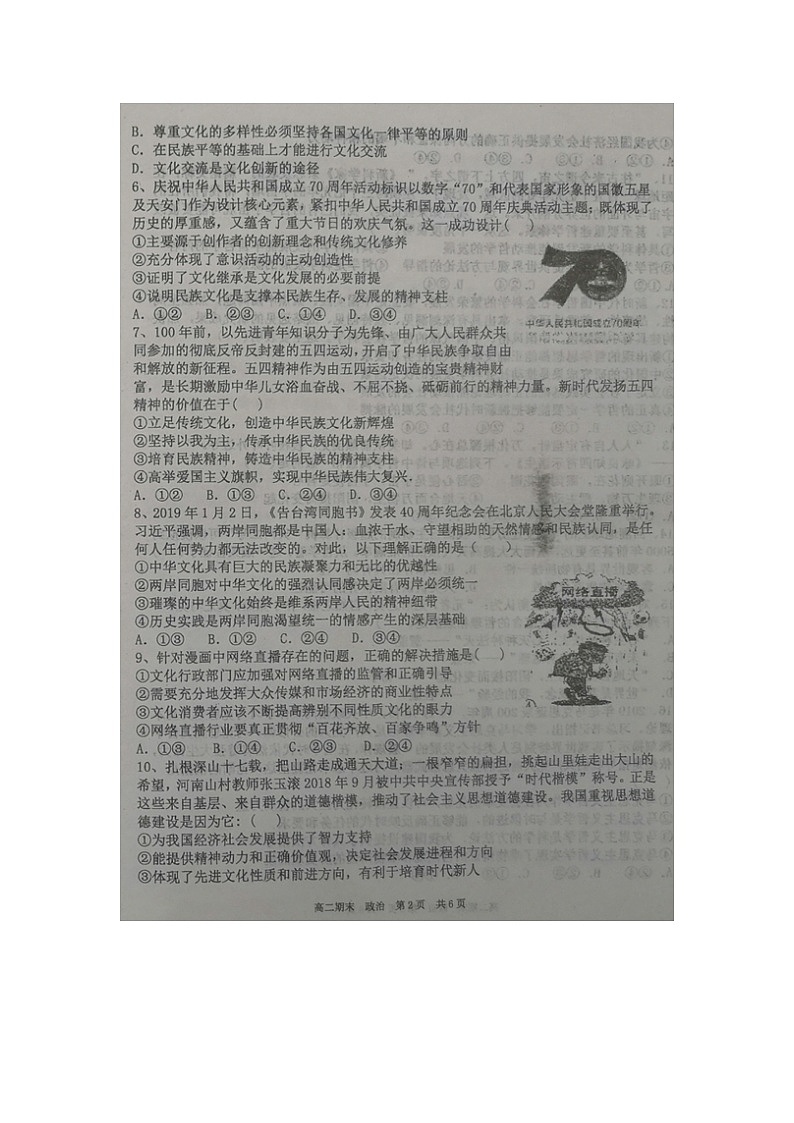 B. 尊重文化的多样性必须坚持各国文化一律平等的原则
C. 在民族平等的基础上才能进行文化交流
D. 文化交流是文化创新的途径
6、庆祝中华人民共和国成立 70 周年活动标识以数字“70”和代表国家形象的国徽五星
及天安门作为设计核心元素，紧扣中华人民共和国成立 70 周年庆典活动主题；既体现了
历史的厚重感，又蕴含了重大节日的欢庆气氛。这一成功设计( )
①主要源于创作者的创新理念和传统文化修养
②充分体现了意识活动的主动创造性
③证明了文化继承是文化发展的必要前提
④说明民族文化是支撑本民族生存、发展的精神支柱
A. ①② B. ②③ C. ①④ D. ③④
70
中华人民共和国成立70周年
7、100 年前，以先进青年知识分子为先锋、由广大人民群众共
同参加的彻底反帝反封建的五四运动，开启了中华民族争取自由
和解放的新征程。五四精神作为由五四运动创造的宝贵精神财
富，是长期激励中华儿女浴血奋战、不屈不挠、砥砺前行的精神力量。新时代发扬五四
精神的价值在于( )
①立足传统文化，创造中华民族文化新辉煌
②坚持以我为主，传承中华民族的优良传统
③培育民族精神，铸造中华民族的精神支柱
④高举爱国主义旗帜，实现中华民族伟大复兴.
A. ①② B. ①③ C. ②④ D. ③④
8、2019 年 1 月 2 日，《告台湾同胞书》发表 40 周年纪念会在北京人民大会堂隆重举行。
习近平强调，两岸同胞都是中国人：血浓于水、守望相助的天然情感和民族认同，是任
何人任何势力都无法改变的。对此，以下理解正确的是 ( )
①中华文化具有巨大的民族凝聚力和无比的优越性
②两岸同胞对中华文化的强烈认同感决定了两岸必须统一
③璀璨的中华文化始终是维系两岸人民的精神纽带
④历史实践是两岸同胞渴望统一的情感产生的深层基础
A. ①③ B. ①② C. ②④ D. ③④
网络直播
9、针对漫画中网络直播存在的问题，正确的解决措施是( )
①文化行政部门应加强对网络直播的监管和正确引导
②需要充分地发挥大众传媒和市场经济的商业性特点
③文化消费者应该不断提高辨别不同性质文化的眼力
④网络直播行业要真正贯彻“百花齐放、百家争鸣”方针
A. ①③ B. ①④ C. ②③ D. ②④
10、扎根深山十七载，把山路走成通天大道；一根窄窄的扁担，挑起山里娃走出大山的
希望，河南山村教师张玉滚 2018 年 9 月被中共中央宣传部授予“时代楷模”称号。正是
这些来自基层、来自群众的道德楷模，推动了社会主义思想道德建设。我国重视思想道
德建设是因为它: ( )
①为我国经济社会发展提供了智力支持
②能提供精神动力和正确价值观，决定社会发展进程和方向
③体现了先进文化性质和前进方向，有利于培育时代新人
高二期末 政治 第 2 页 共 6 页